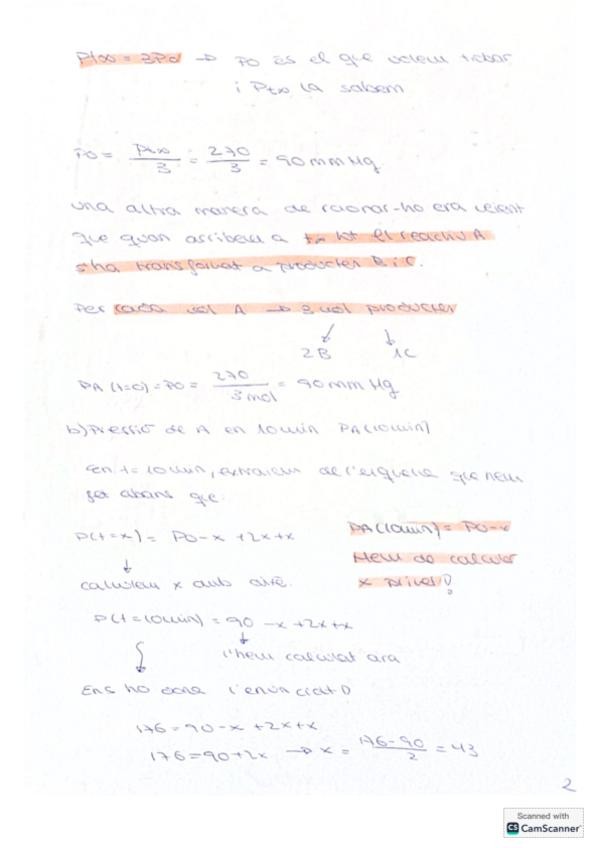 Pt∞ = 3P0 → P0 és el que volem trobar
i Pt∞ la sabem
P0 = Pt∞/3 = 270/3 = 90 mm Hg
una altra manera de raonar-ho era veient
que quan arribem a t∞ tot el reactiu A
s'ha transformat a productes B i C.
Per cada mol A → 3 mol productes
2B 1C
PA (t=0) = P0 = 270/3mol = 90 mm Hg
b) Pressió de A en 10 min PA(10min)
En t = 10 min, extraiem de l'esquema que hem
fet abans que:
P(t=x) = P0 - x + 2x + x
PA(10min) = P0-x
Hem de calcular
x primer!
calculem x amb això.
P(t=10min) = 90 - x + 2x + x
l'hem calculat ara
Ens ho dona l'enunciat
176 = 90 - x + 2x + x
176 = 90 + 2x → x = 176-90/2 = 43
2
Scanned with
CS CamScanner